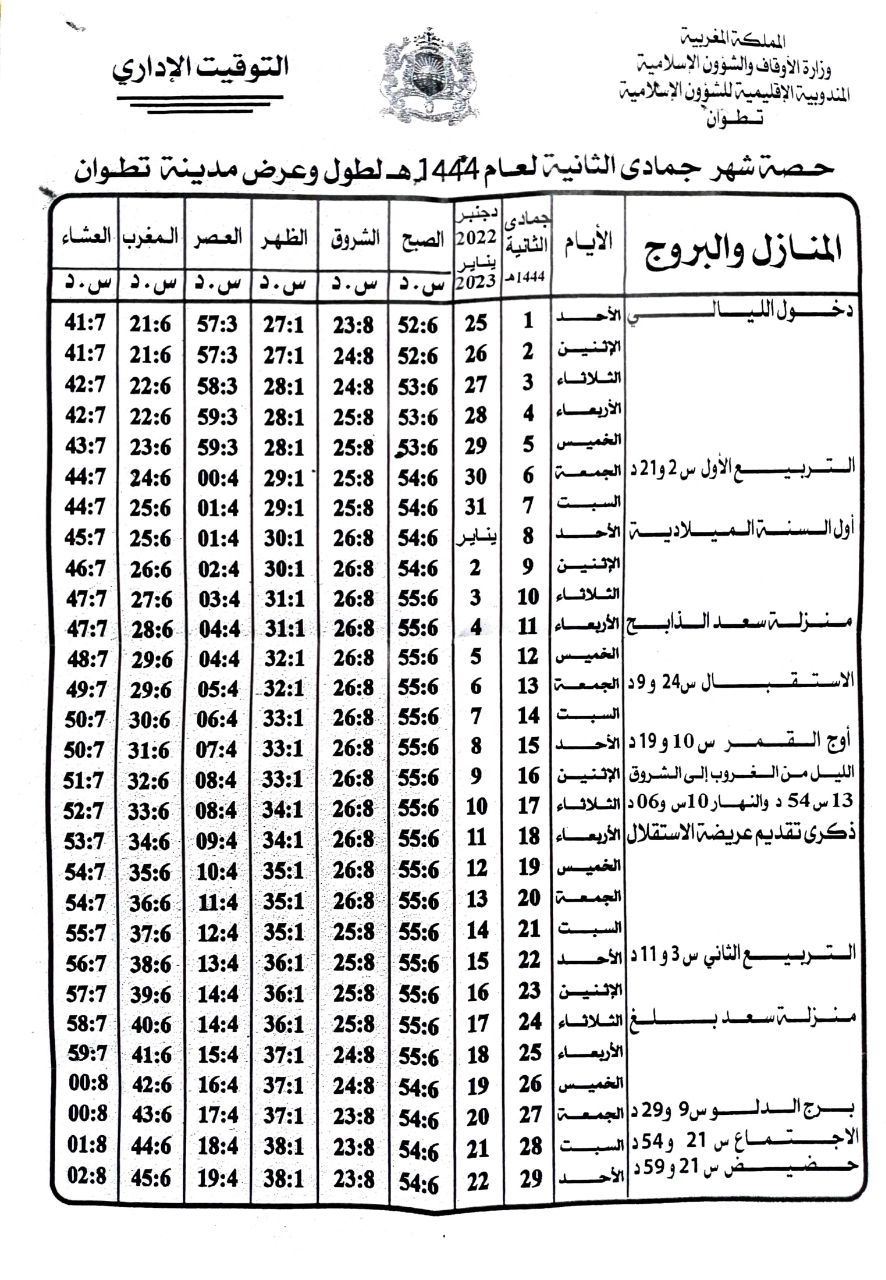 المملكة المغربية
وزارة الأوقاف والشؤون الإسلامية
المندوبية الإقليمية للشؤون الإسلامية
تطوان
التوقيت الإداري
حصة شهر جمادى الثانية لعام 1444هـ لطول وعرض مدينة تطوان
المنازل والبروج الأيام جمادى الثانية 1444هـ دجنبر 2022 يناير 2023 الصبح الشروق الظهر العصر المغرب العشاء
س.د س.د س.د س.د س.د س.د
دخول الليالي الأحد 1 25 52:6 23:8 27:1 57:3 21:6 41:7
الإثنين 2 26 52:6 24:8 27:1 57:3 21:6 41:7
الثلاثاء 3 27 53:6 24:8 28:1 58:3 22:6 42:7
الأربعاء 4 28 53:6 25:8 28:1 59:3 22:6 42:7
الخميس 5 29 53:6 25:8 28:1 59:3 23:6 43:7
التربيع الأول س 2 و21 د الجمعة 6 30 54:6 25:8 29:1 00:4 24:6 44:7
السبت 7 31 54:6 25:8 29:1 01:4 25:6 44:7
أول السنة الميلادية الأحد 8 يناير 54:6 26:8 30:1 01:4 25:6 45:7
الإثنين 9 2 54:6 26:8 30:1 02:4 26:6 46:7
الثلاثاء 10 3 55:6 26:8 31:1 03:4 27:6 47:7
منزلة سعد الذابح الأربعاء 11 4 55:6 26:8 31:1 04:4 28:6 47:7
الخميس 12 5 55:6 26:8 32:1 04:4 29:6 48:7
الاستقبال س24 و9د الجمعة 13 6 55:6 26:8 32:1 05:4 29:6 49:7
السبت 14 7 55:6 26:8 33:1 06:4 30:6 50:7
أوج القمر س 10 و19 د الأحد 15 8 55:6 26:8 33:1 07:4 31:6 50:7
الليل من الغروب إلى الشروق الإثنين 16 9 55:6 26:8 33:1 08:4 32:6 51:7
13 س 54 د والنهار 10س و06د الثلاثاء 17 10 55:6 26:8 34:1 08:4 33:6 52:7
ذكرى تقديم عريضة الاستقلال الأربعاء 18 11 55:6 26:8 34:1 09:4 34:6 53:7
الخميس 19 12 55:6 26:8 35:1 10:4 35:6 54:7
الجمعة 20 13 55:6 26:8 35:1 11:4 36:6 54:7
السبت 21 14 55:6 25:8 35:1 12:4 37:6 55:7
التربيع الثاني س 3 و11 د الأحد 22 15 55:6 25:8 36:1 13:4 38:6 56:7
الإثنين 23 16 55:6 25:8 36:1 14:4 39:6 57:7
منزلة سعد بلغ الثلاثاء 24 17 55:6 25:8 36:1 14:4 40:6 58:7
الأربعاء 25 18 55:6 24:8 37:1 15:4 41:6 59:7
الخميس 26 19 54:6 24:8 37:1 16:4 42:6 00:8
برج الدلو س9 و29 د الجمعة 27 20 54:6 23:8 37:1 17:4 43:6 00:8
الاجتماع س 21 و54د السبت 28 21 54:6 23:8 38:1 18:4 44:6 01:8
حضيض س 21 و59د الأحد 29 22 54:6 23:8 38:1 19:4 45:6 02:8